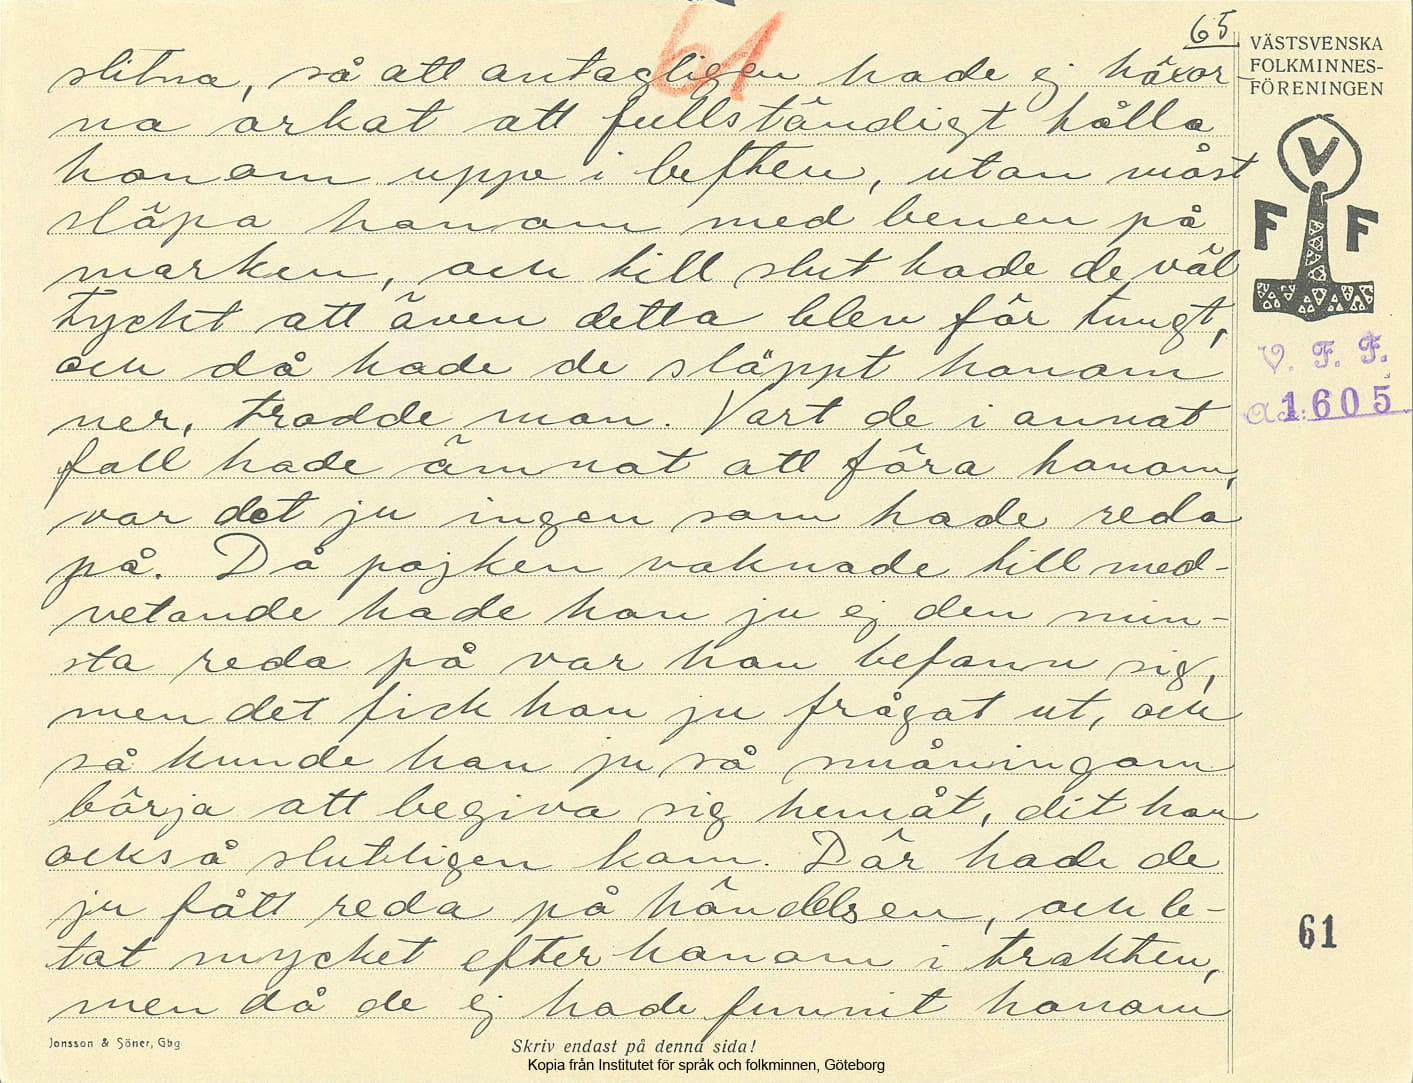 65
61
VÄSTSVENSKA
FOLKMINNES-
FÖRENINGEN
V
F F
V. F. F.
Acc: 1605
slitna, så att antagligen hade ej häxor-
na orkat att fullständigt hålla
honom uppe i luften, utan måst
släpa honom med benen på
marken, och till slut hade de väl
tyckt att även detta blev för tungt,
och då hade de släppt honom
ner, trodde man. Vart de i annat
fall hade ämnat att föra honom,
var det ju ingen som hade reda
på. Då pojken vaknade till med-
vetande hade han ju ej den min-
sta reda på var han befann sig,
men det fick han ju frågat ut, och
så kunde han ju så småningom
börja att begiva sig hemåt, dit han
också slutligen kom. Där hade de
ju fått reda på händelsen, och le-
tat mycket efter honom i trakten,
men då de ej hade funnit honom
61
Jonsson & Söner, Gbg
Skriv endast på denna sida!
Kopia från Institutet för språk och folkminnen, Göteborg